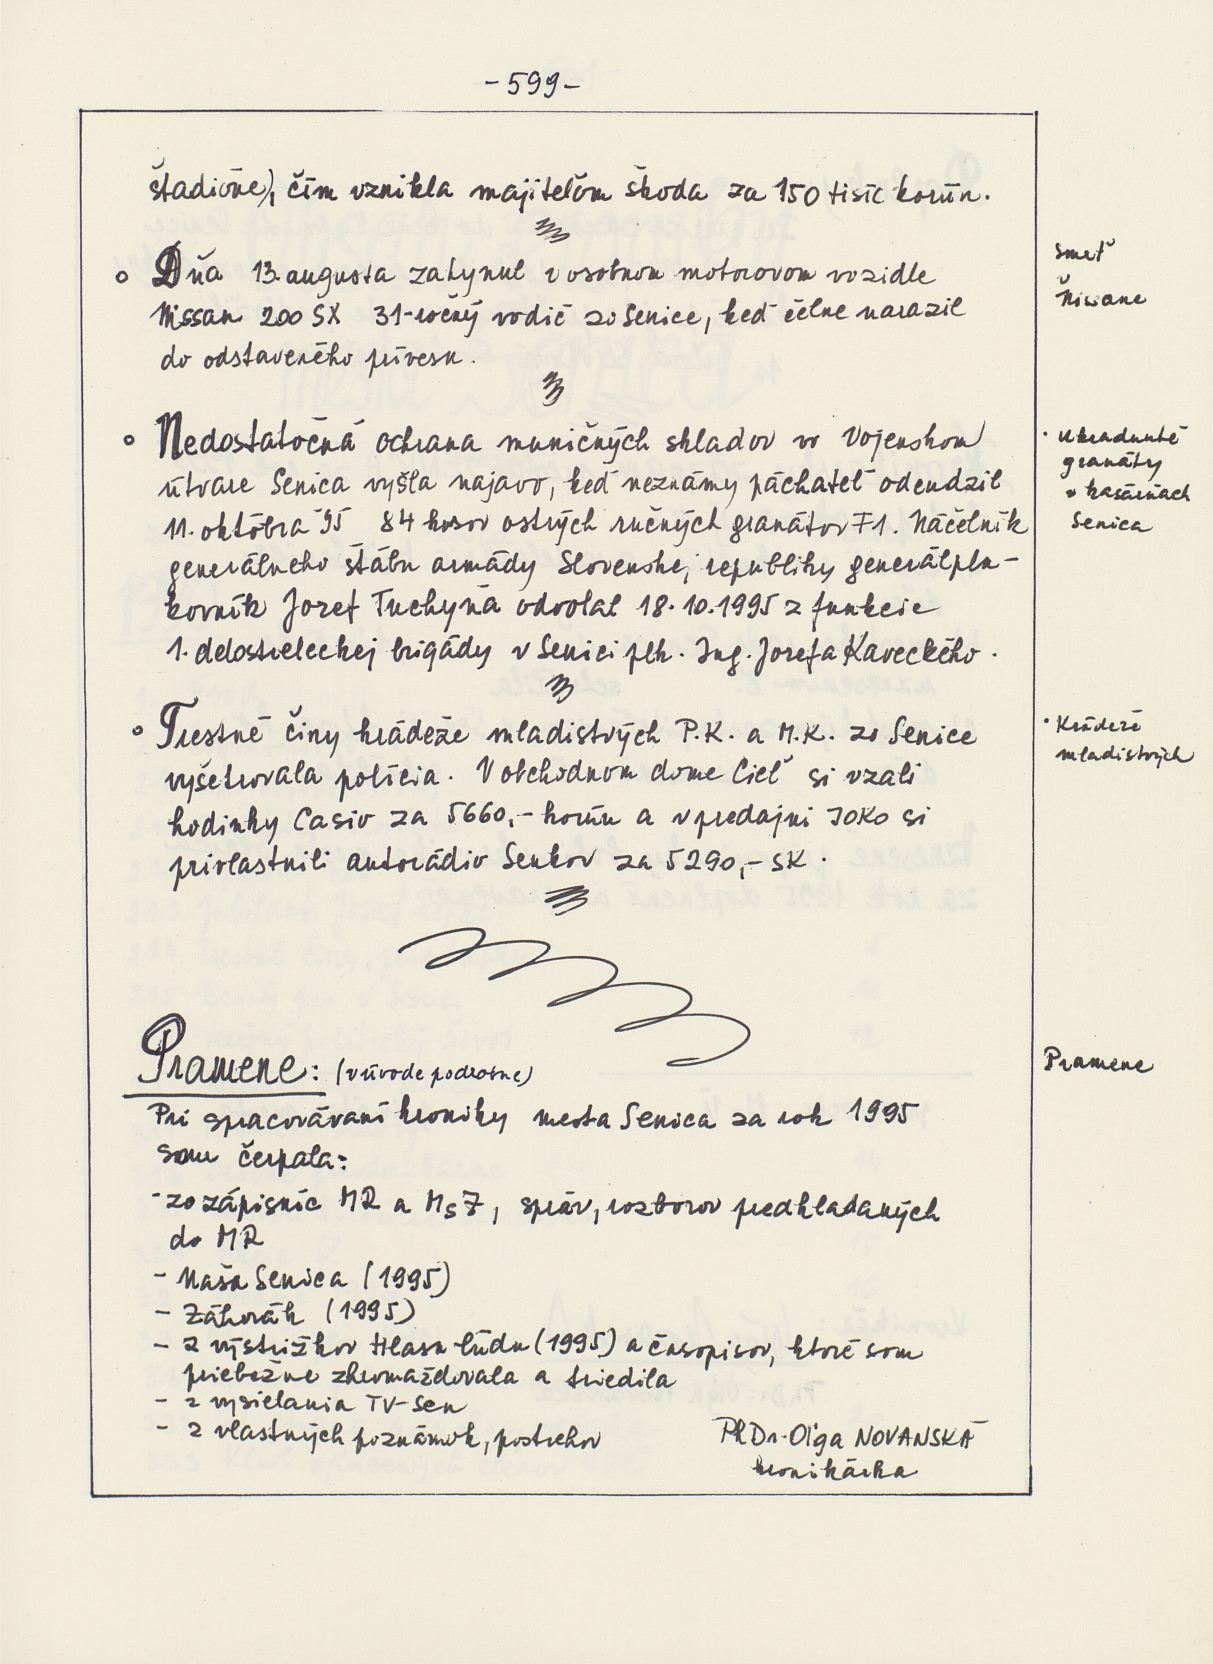 - 599 -
štadióne), čím vznikla majiteľom škoda za 150 tisíc korún.
Dňa 13. augusta zahynul v osobnom motorovom vozidle
Nissan 200 SX 31-ročný vodič zo Senice, keď čelne narazil
do odstaveného prívesu.
Smrť
v Nissane
Nedostatočná ochrana muničných skladov vo Vojenskom
útvare Senica vyšla najavo, keď neznámy páchateľ odcudzil
11. októbra '95 84 kusov ostrých ručných granátov F1. Náčelník
generálneho štábu armády Slovenskej republiky generálplu-
kovník Jozef Tuchyňa odvolal 18.10.1995 z funkcie
1. delostreleckej brigády v Senici plk. Ing. Jozefa Kaveckého.
· ukradnuté
granáty
v kasárňach
Senica
Trestné činy krádeže mladistvých P.K. a M.K. zo Senice
vyšetrovala polícia. V obchodnom dome Cieľ si vzali
hodinky Casio za 5660,- korún a v predajni JOKO si
privlastnili autorádio Senkor za 5290,- SK.
· Krádeže
mladistvých
Pramene: (v úvode podrobne)
Pri spracovávaní kroniky mesta Senica za rok 1995
som čerpala:
- zo zápisníc MR a MsZ, správ, rozborov predkladaných
do MR
- Naša Senica (1995)
- Záhorák (1995)
- z výstrižkov Hlasu ľudu (1995) a časopisov, ktoré som
priebežne zhromažďovala a triedila
- z vysielania TV-Sen
- z vlastných poznámok, postrehov
PhDr. Oľga NOVANSKÁ
kronikárka
Pramene